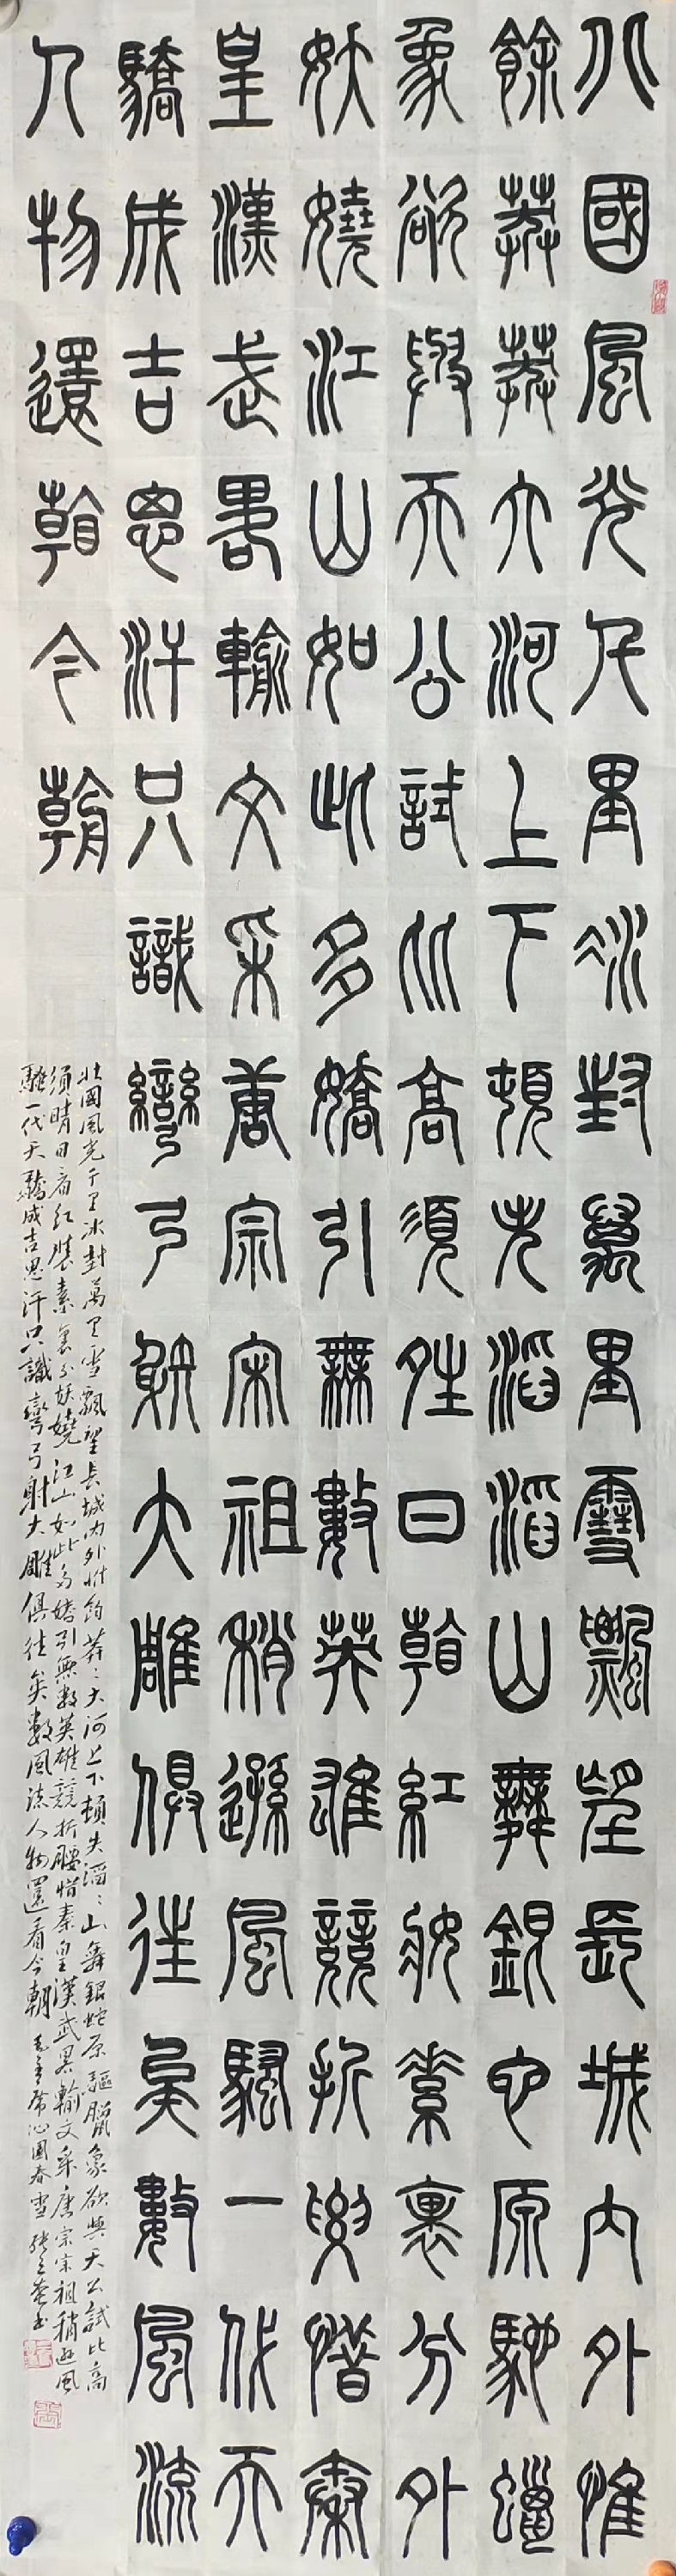 北國風光千里冰封萬里雪飄望長城內外惟
餘莽莽大河上下頓失滔滔山舞銀蛇原馳蠟
象欲與天公試比高須晴日看紅妝素裹分外
妖嬈江山如此多嬌引無數英雄競折腰惜秦
皇漢武畧輸文采唐宗宋祖稍遜風騷一代天
驕成吉思汗只識彎弓射大雕俱往矣數風流
人物還看今朝
北國風光千里冰封萬里雪飄望長城內外惟餘莽〻大河上下頓失滔〻山舞銀蛇原驅臘象欲與天公試比高
須晴日看紅裝素裹分妖嬈江山如此多嬌引無數英雄競折腰惜秦皇漢武畧輸文采唐宗宋祖稍遜風
騷一代天驕成吉思汗只識彎弓射大雕俱往矣數風流人物還看今朝 毛主席沁園春雪 張書